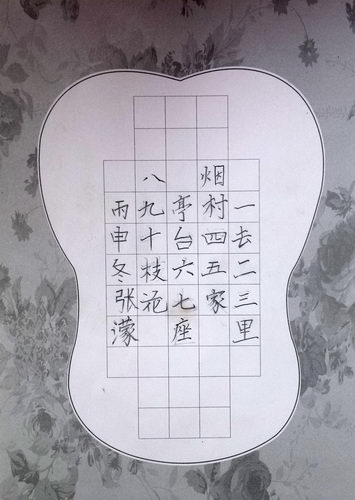 一去二三里
烟村四五家
亭台六七座
八九十枝花
丙申冬张濛